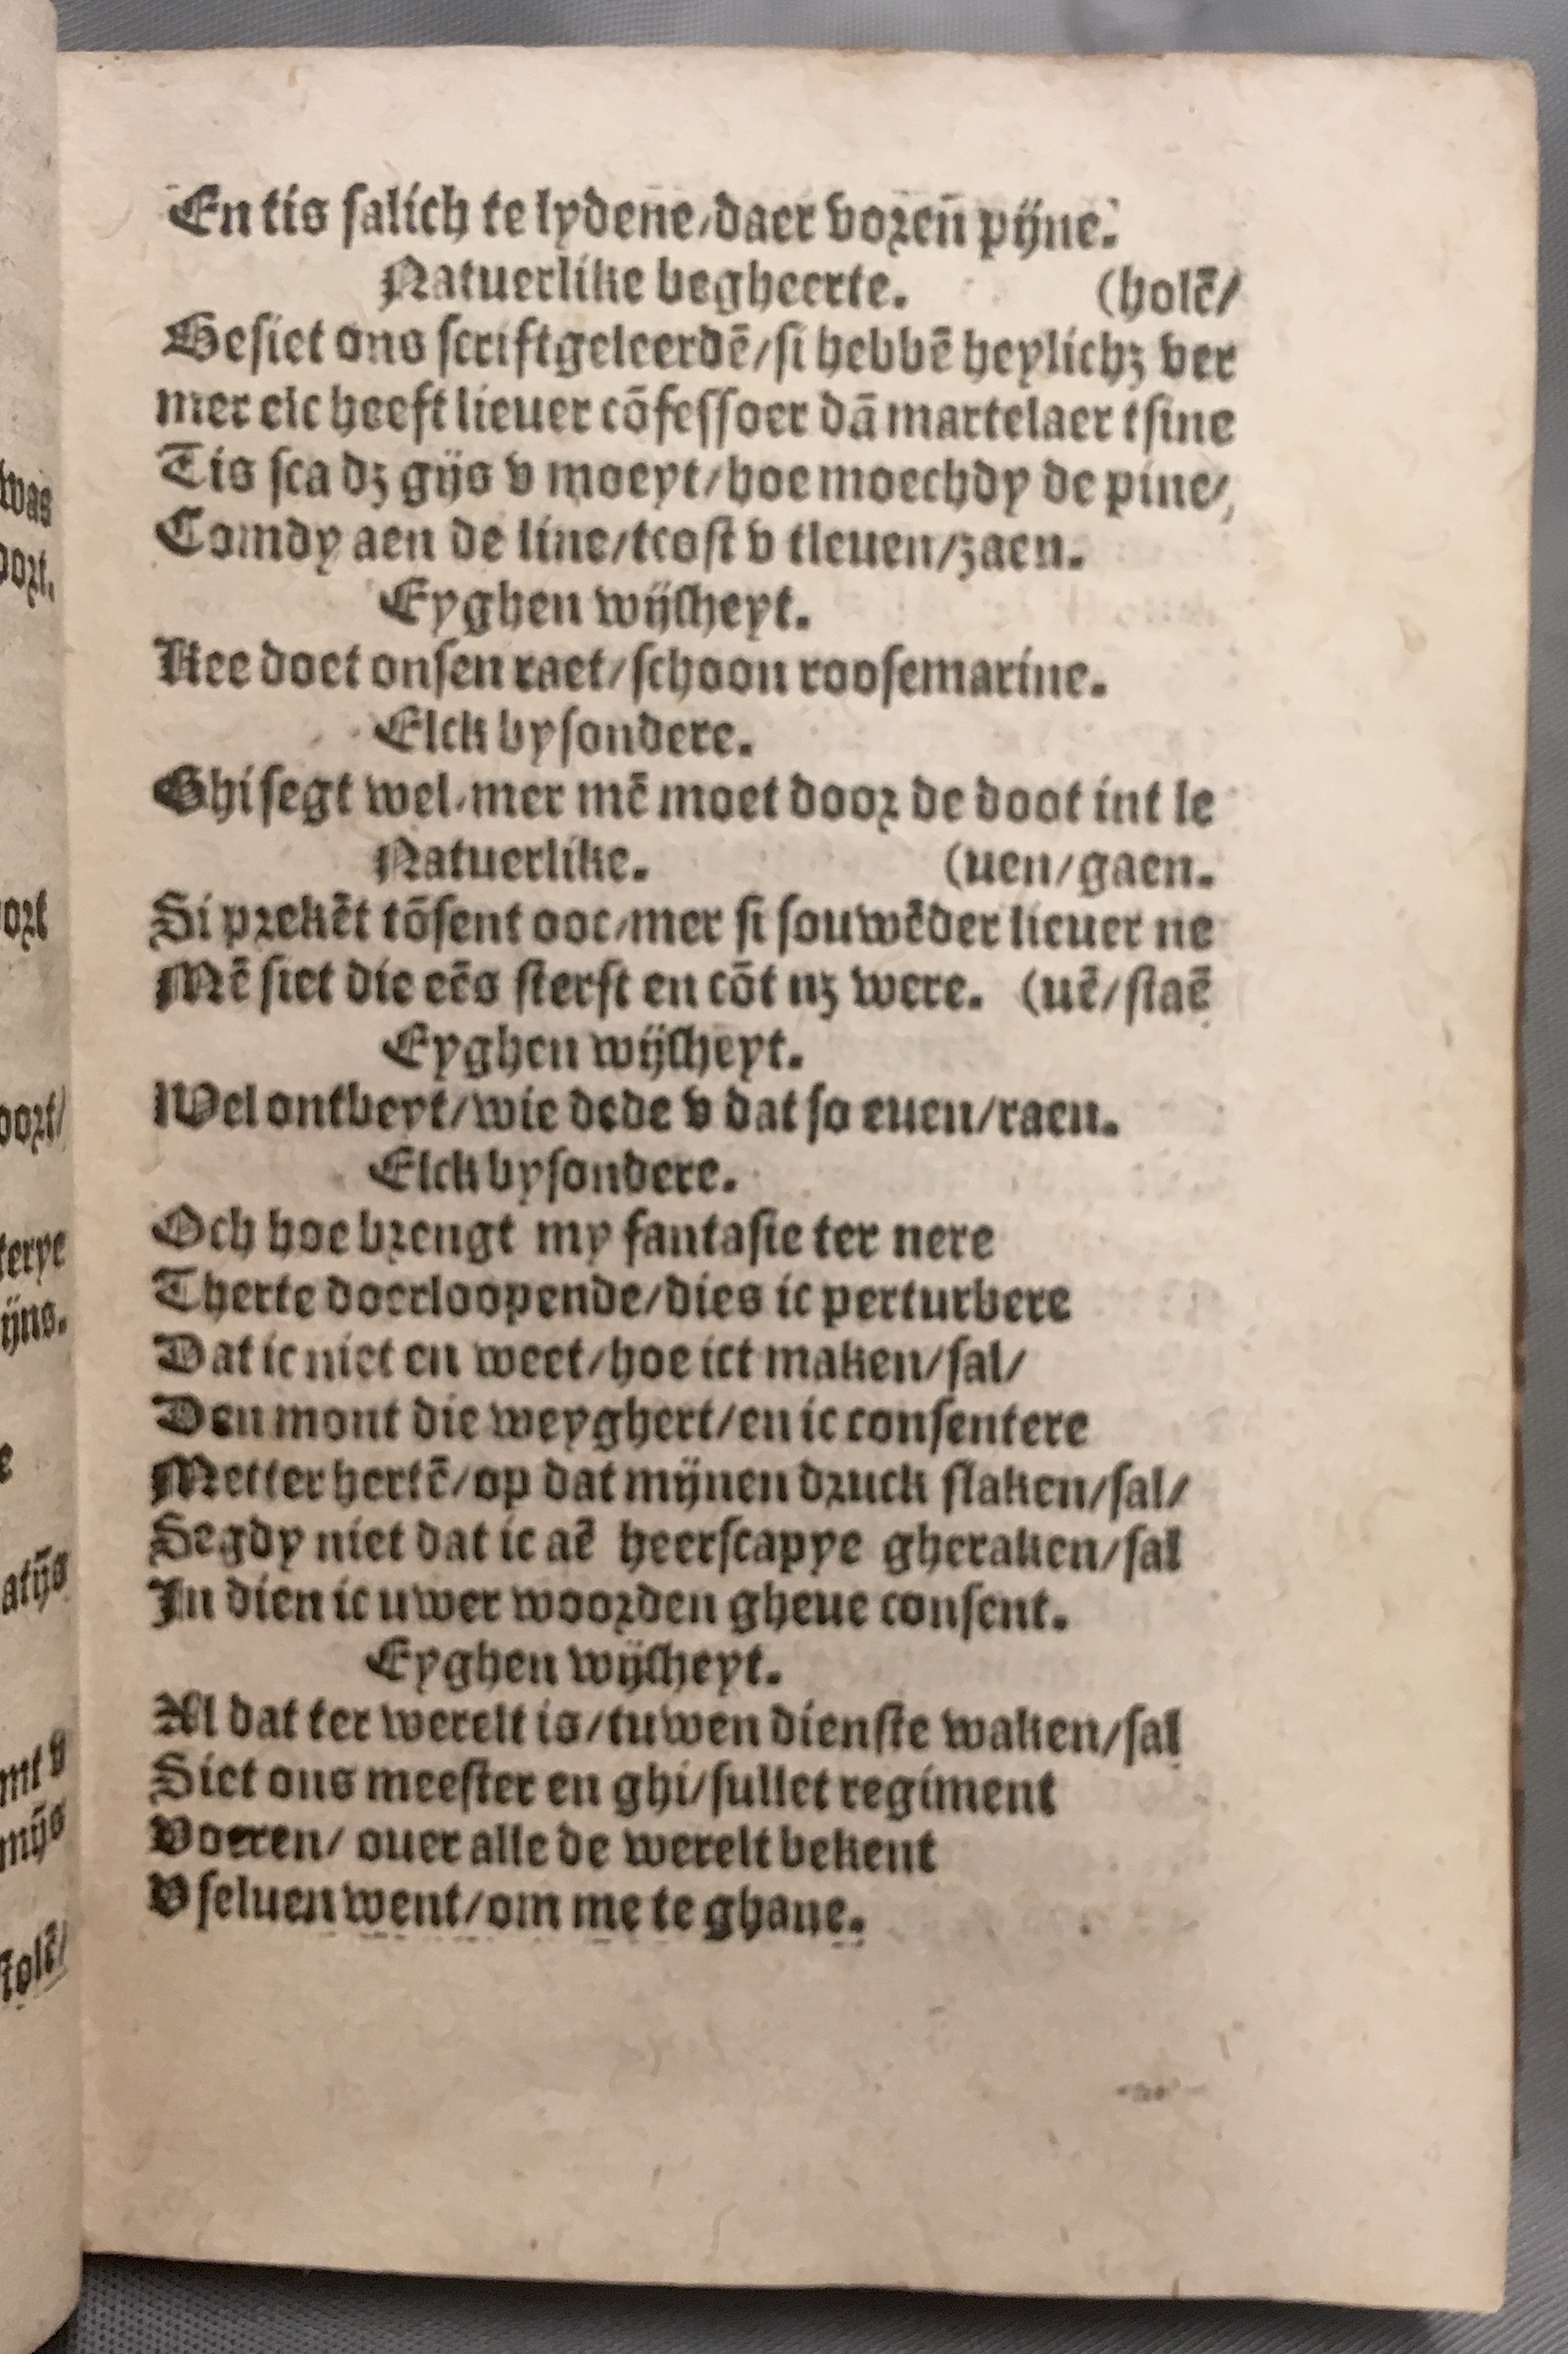 En tis salich te lydene/daer vozen̄ pijne.
Natuerlike begheerte. (holē/
Besiet ons scriftgeleerdē/si hebbē heylichz ver
mer elc heeft lieuer cōfessoer dā martelaer tsine
Tis sca dz gijs v moeyt/hoe moechdy de pine/
Comdy aen de line/tcost v tleuen/zaen.
Eyghen wijsheyt.
Nee doet onsen raet/schoon roosemarine.
Elck bysondere.
Ghi segt wel/mer mē moet door de doot int le
Natuerlike. (uen/gaen.
Si prekēt tōsent ooc/mer si souwēder lieuer ne
Mē siet die eēs sterft en cōt nz were. (uē/staē
Eyghen wijsheyt.
Wel ontbeyt/wie dede v dat so euen/raen.
Elck bysondere.
Och hoe brengt my fantasie ter nere
Therte doerloopende/dies ic perturbere
Dat ic niet en weet/hoe ict maken/sal/
Den mont die weyghert/en ic consentere
Metter hertē/op dat mijnen druck slaken/sal/
Segdy niet dat ic aē heerscappye gheraken/sal
In dien ic uwer woorden gheue consent.
Eyghen wijsheyt.
Al dat ter werelt is/tuwen dienste waken/sal
Siet ons meester en ghi/sullet regiment
Voeren/ ouer alle de werelt bekent
V seluen went/om me te ghane.